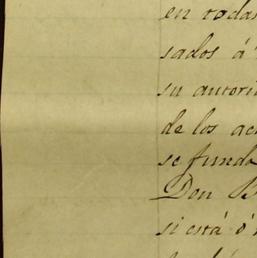 en
sados á
su autori
de los ac
se funda
Don B
si está ó